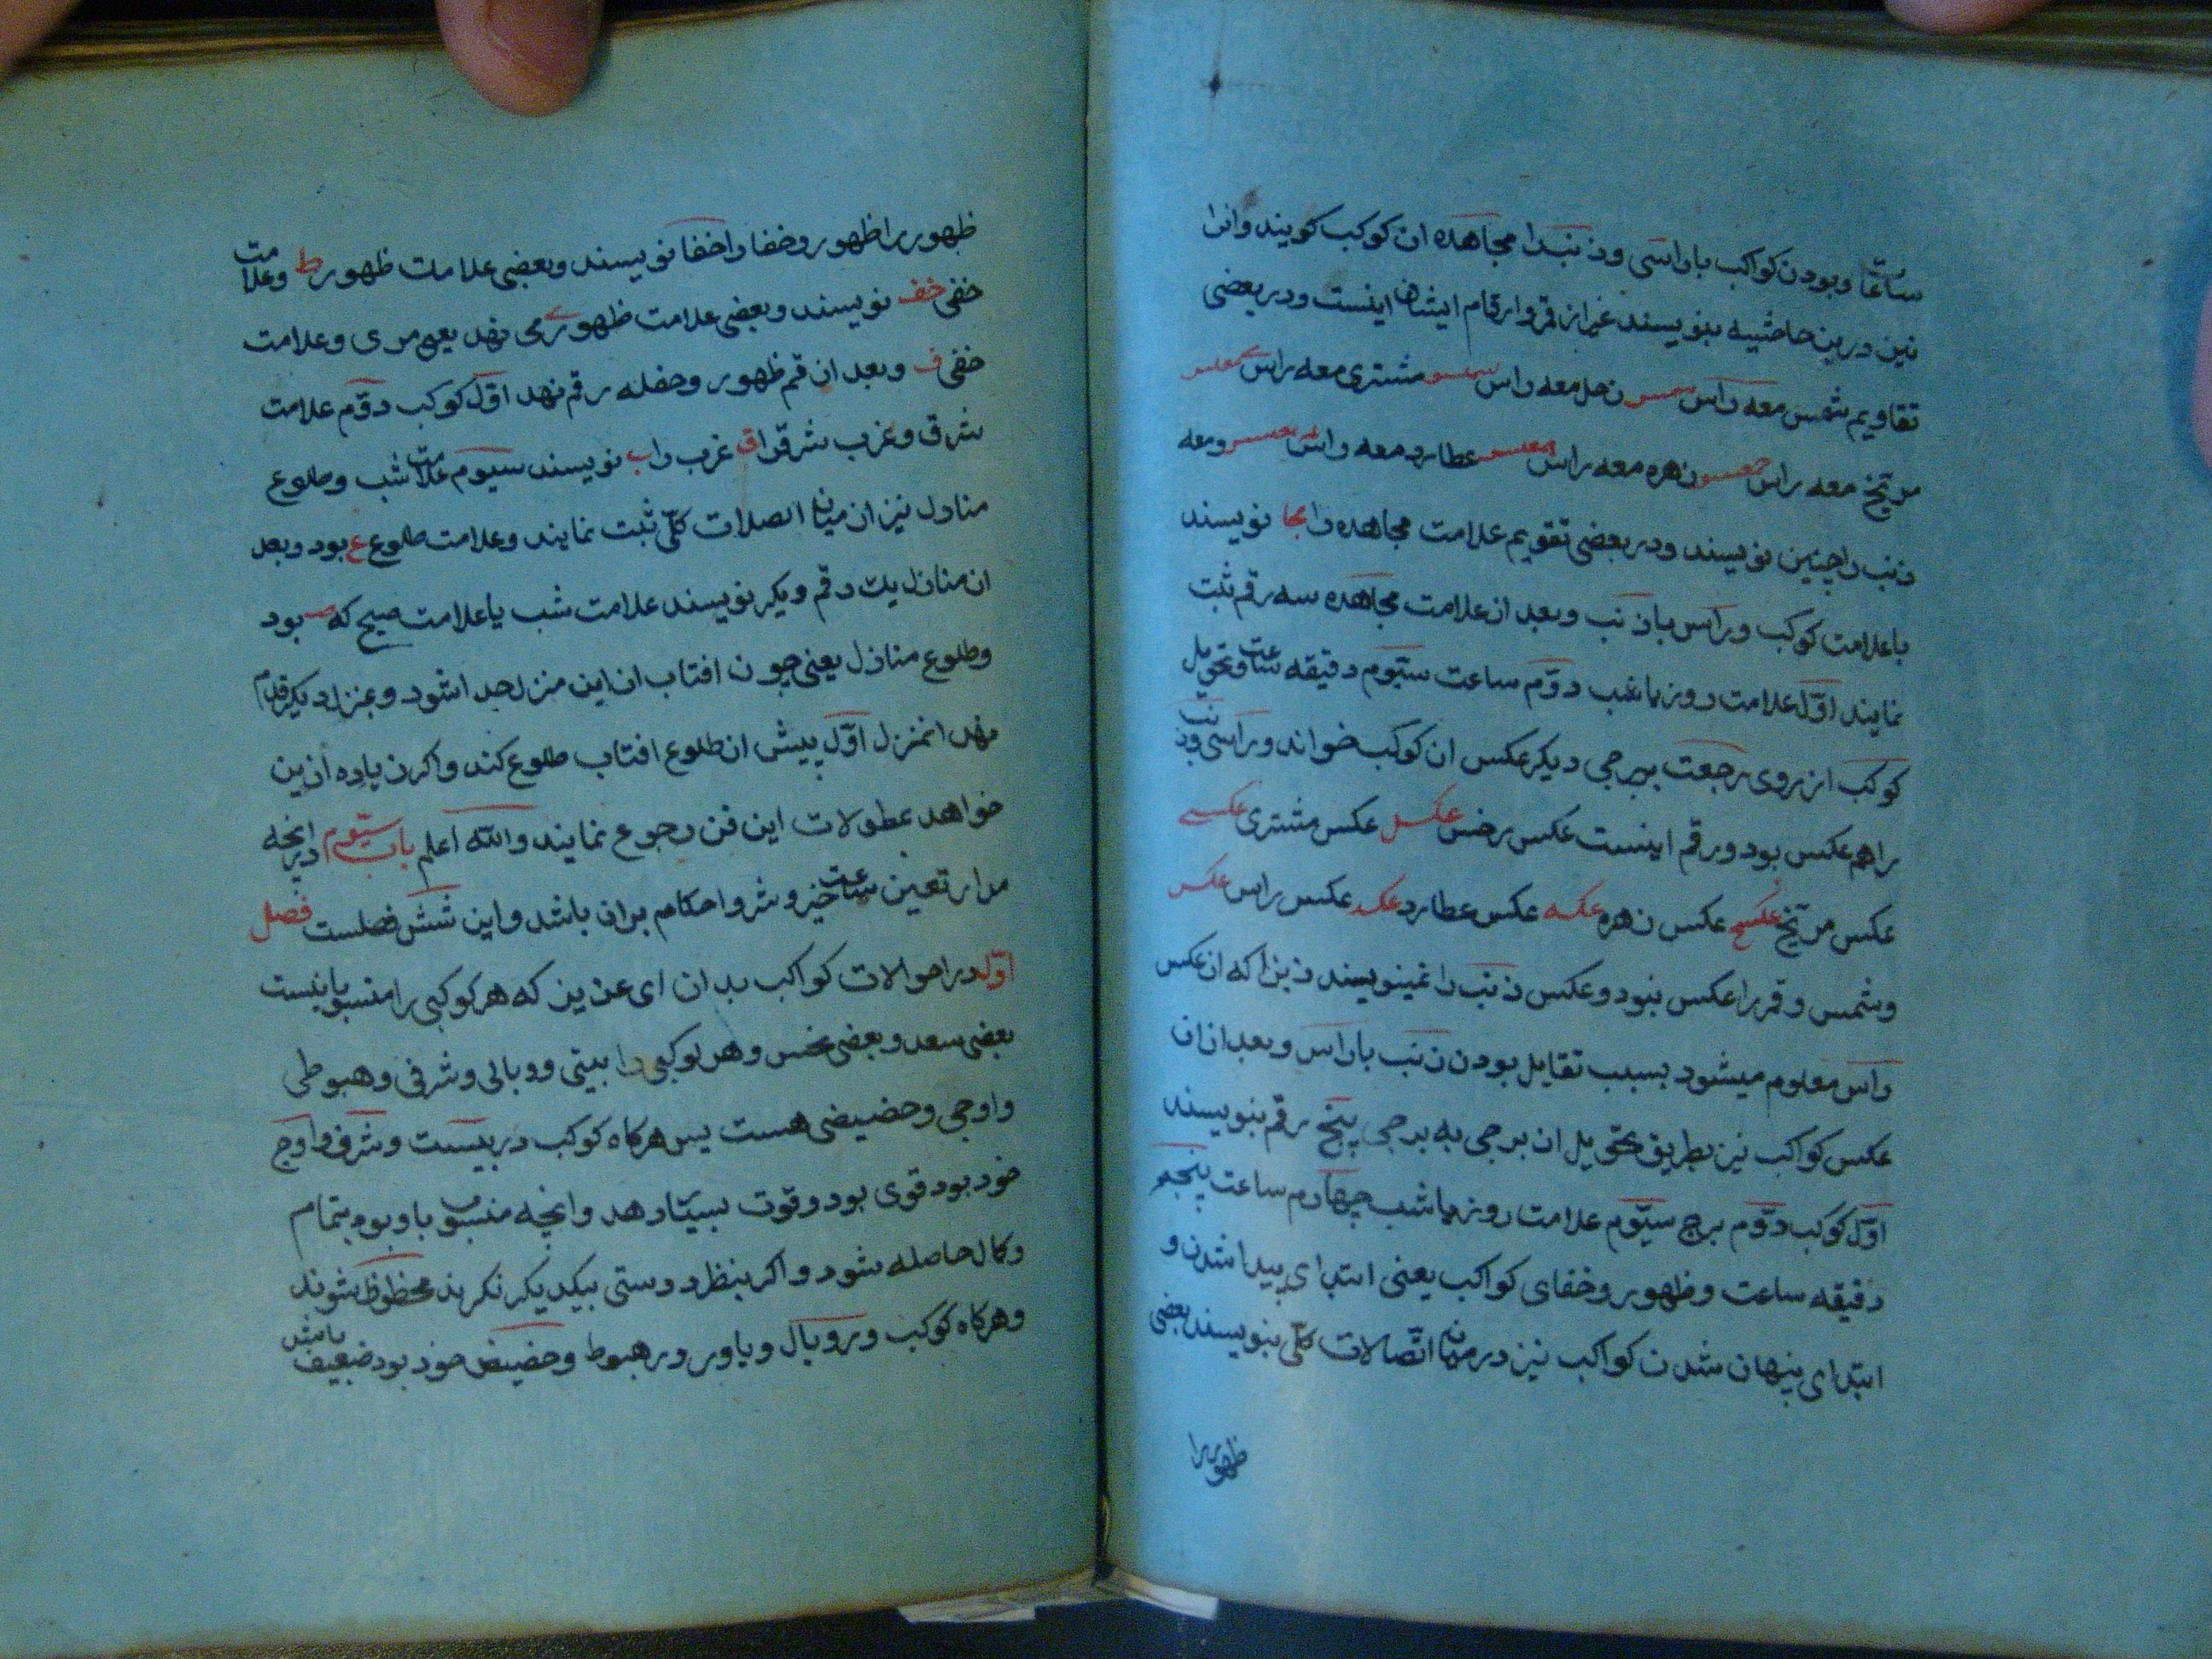 ساعتا وبودن کواکب باراسی وذنبدا مجاهده ان کوکب کویند وانرا
نین درین حاشیه بنویسند غیر از قمر وارقام ایشان اینست ودر بعضی
تقاویم شمس معه راس زحل معه راس مشتری معه راس
مریخ معه راس زهره معه راس عطارد معه راس ومعه
ذنب را چنین نویسند ودر بعضی تقویم علامت مجاهده را مجا نویسند
با علامت کوکب وراس باذنب وبعد از علامت مجاهده سه رقم ثبت
نمایند اول علامت روز یا شب دوم ساعت سیوم دقیقه ساعت وتحویل
کوکب از روی رجعت ببرجی دیکر عکس ان کوکب خواند وراسی وذنب
را هم عکس بود ورقم اینست عکس زحل عکسل عکس مشتری عکسی
عکس مریخ عکسخ عکس زهره عکسه عکس عطارد عکسد عکس راس عکس
وشمس وقمر را عکس بنود وعکس ذنب را نمینویسند زیرا که از عکس
راس معلوم میشود بسبب تقابل بودن ذنب باراس وبعد ازان
عکس کواکب نیز بطریق تحویل از برجی به برجی پنج رقم بنویسند
اول کوکب دوم برج سیوم علامت روز یا شب چهارم ساعت پنجم
دقیقه ساعت وظهور وخفای کواکب یعنی ابتدای پیدا شدن و
ابتدای پنهان شدن کواکب نیز درمیان اتصالات کلی بنویسند بعضی
ظهور را
ظهور را ظهور وخفا را خفا نویسند وبعضی علامت ظهور ط وعلامت
خفی خف نویسند وبعضی علامت ظهور ی می نهد یعنی مرءی وعلامت
خفی ف وبعد ان رقم ظهور وخفا سه رقم نهد اول کوکب دوم علامت
شرق وغرب شرق را ق غرب را ب نویسند سیوم علامت شب وطلوع
منازل نیز ازمیان اتصالات کلی ثبت نمایند وعلامت طلوع ع بود وبعد
ان منازل یک رقم ویکر نویسند علامت شب یا علامت صبح که ص بود
وطلوع منازل یعنی چون افتاب ازاین منزل جدا شود وبمنزل دیکر قدم
نهد انمنزل اول پیش از طلوع افتاب طلوع کند واکر زیاده ازین
خواهد عطولات این فن رجوع نمایند والله اعلم باب سیوم در انچه
مدار تعین ساعت خیر وشر واحکام بران باشد واین شش فصلست فصل
اول در احوالات کواکب بدان ای عزیز که هر کوکبی را منسوباتیست
بعضی سعد وبعضی نحس وهر کوکبی را بیتی ووبالی وشرفی وهبوطی
واوجی وحضیضی هست پس هرکاه کوکب در بیست وشرف واوج
خود بود قوی بود وقوت بسیار دهد وانچه منسوب باو بود بتمام
وکمال حاصله شود واکر بنظر دوستی بیکدیکر نکرند محظوظ شوند
وهرکاه کوکب در وبال ویا ور در هبوط وحضیض خود بود ضعیف باشد